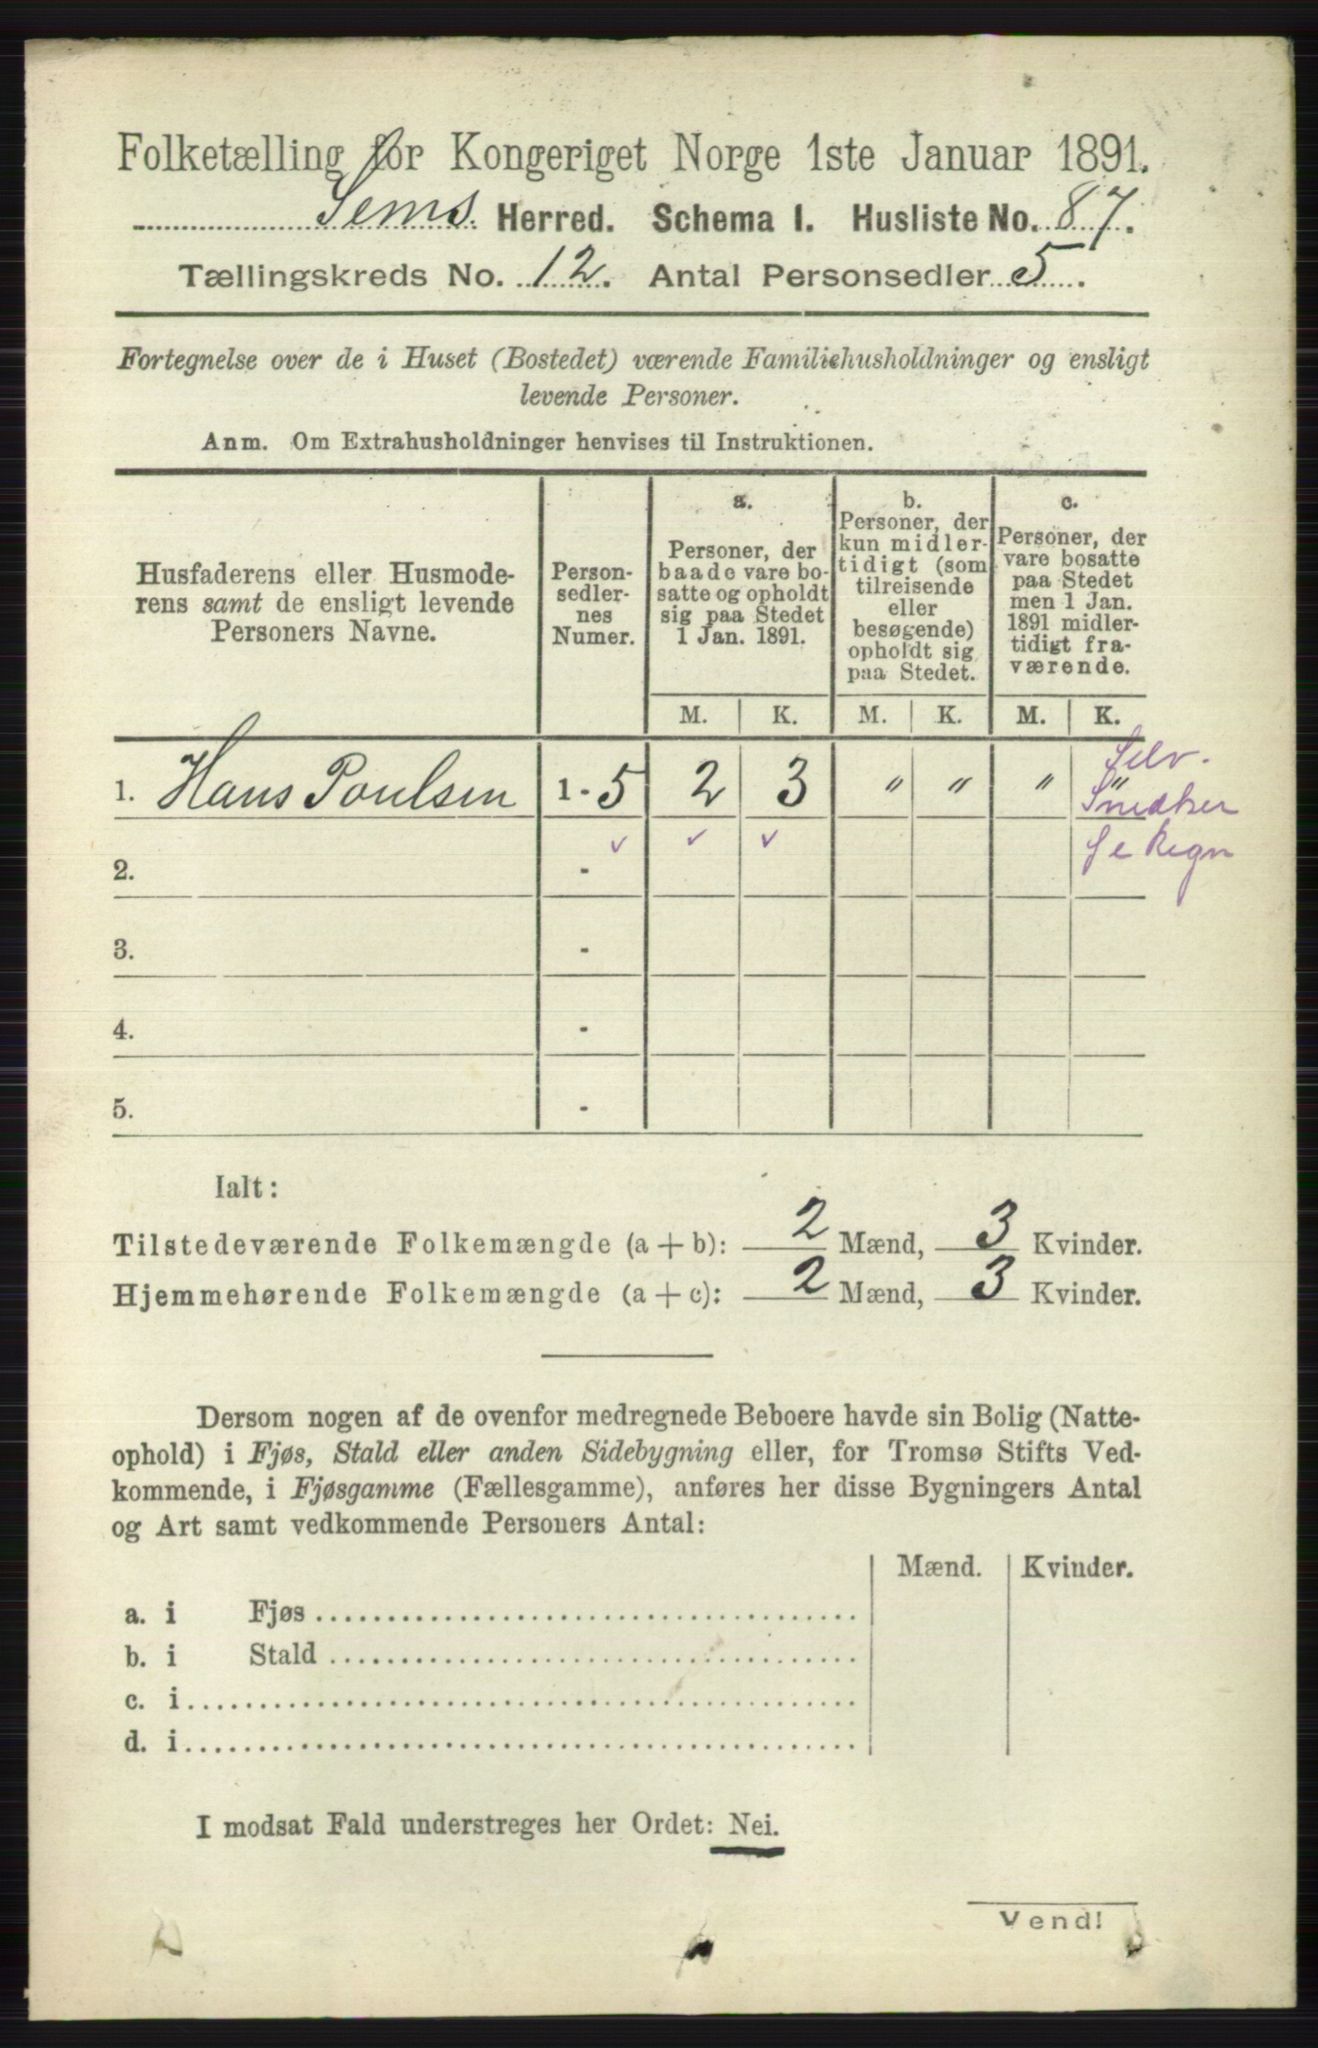 Folketælling for Kongeriget Norge 1ste Januar 1891.
Sems Herred. Schema I. Husliste No. 87.
Tællingskreds No. 12. Antal Personsedler 5.
Fortegnelse over de i Huset (Bostedet) værende Familiehusholdninger og ensligt
levende Personer.
Anm. Om Extrahusholdninger henvises til Instruktionen.
Husfaderens eller Husmode-
rens samt de ensligt levende
Personers Navne.
Person-
sedler-
nes
Numer.
a.
Personer, der
baade vare bo-
satte og opholdt
sig paa Stedet
1 Jan. 1891.
b.
Personer, der
kun midler-
tidigt (som
tilreisende
eller
besøgende)
opholdt sig
paa Stedet.
c.
Personer, der
vare bosatte
paa Stedet
men 1 Jan.
1891 midler-
tidigt fra-
værende.
M. K. M. K. M. K.
1. Hans Poulsen 1-5 2 3 " " " "
Selv.
Snedker
2. -
3. -
4. -
5. -
Ialt:
Tilstedeværende Folkemængde (a + b): 2 Mænd, 3 Kvinder.
Hjemmehørende Folkemængde (a + c): 2 Mænd, 3 Kvinder.
Dersom nogen af de ovenfor medregnede Beboere havde sin Bolig (Natte-
ophold) i Fjøs, Stald eller anden Sidebygning eller, for Tromsø Stifts Ved-
kommende, i Fjøsgamme (Fællesgamme), anføres her disse Bygningers Antal
og Art samt vedkommende Personers Antal:
Mænd. Kvinder.
a. i Fjøs
b. i Stald
c. i
d. i
I modsat Fald understreges her Ordet: Nei.
Vend!